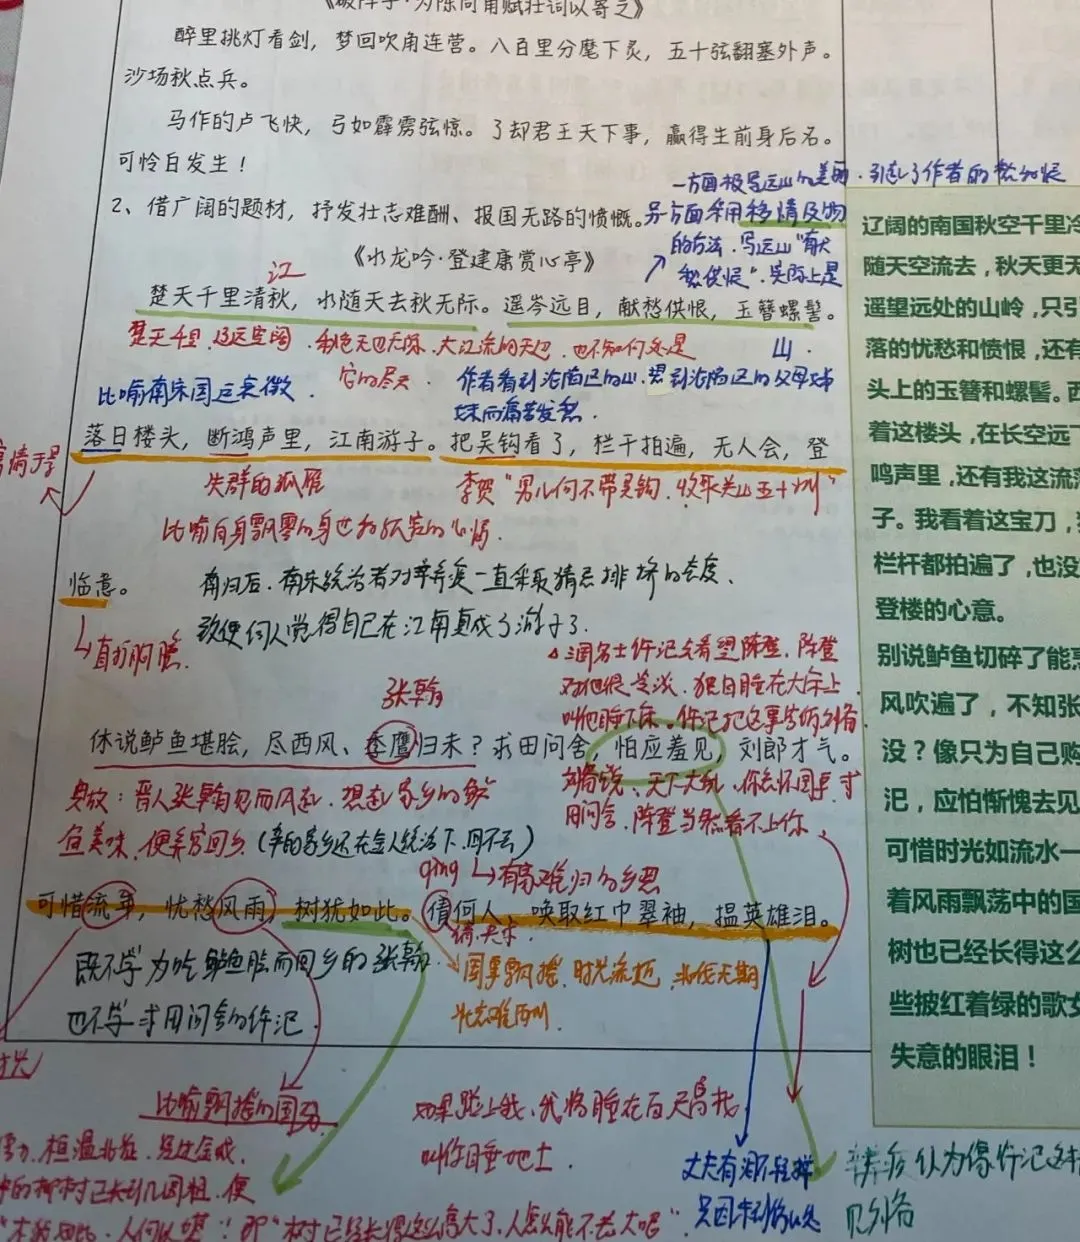 《破阵子·为陈同甫赋壮词以寄之》
醉里挑灯看剑，梦回吹角连营。八百里分麾下炙，五十弦翻塞外声。
沙场秋点兵。
马作的卢飞快，弓如霹雳弦惊。了却君王天下事，赢得生前身后名。
可怜白发生！
一方面极写远山的美丽，引起了作者的愁和恨
2、借广阔的题材，抒发壮志难酬、报国无路的愤慨。
另方面采用移情及物
的方法，写远山"献
愁供恨"，实际上是
《水龙吟·登建康赏心亭》
江
楚天千里清秋，水随天去秋无际。遥岑远目，献愁供恨，玉簪螺髻。
楚天千里，辽远空阔，秋色无边无际，大江流向天边，也不知何处是
它的尽头．
山．
比喻南宋国运衰微．
作者看到沦陷区的山，想到沦陷区的父母
而痛苦发愁．
落日楼头，断鸿声里，江南游子。把吴钩看了，栏干拍遍，无人会，登
失群的孤雁
李贺"男儿何不带吴钩，收取关山五十州"
比喻自身飘零的身世和孤寂的心情．
临意。
南归后，南宋统治者对辛弃疾一直采取猜忌排挤的态度、
致使何人觉得自己在江南真成了游子了．
直抒胸臆．
三国名士许汜去看望陈登，陈登
对他很冷淡，独自睡在大床上，
叫他睡下床。许汜把这事告诉刘备．
张翰
休说鲈鱼堪脍，尽西风、季鹰归未？求田问舍，怕应羞见，刘郎才气。
刘备说、天下大乱，你忘怀国事，求
田问舍，陈登当然看不上你．
典故：晋人张翰见西风起，想起家乡的鲈
鱼美味，便弃官回乡（辛的家乡还在金人统治下，回不去）
qing
有家难归的乡思
可惜流年，忧愁风雨，树犹如此。倩何人、唤取红巾翠袖，揾英雄泪。
请，央求．
既不学为吃鲈鱼脍而回乡的张翰．
也不学求田问舍的许汜．
国事飘摇，时光流逝，北伐无期
壮志难酬．
比喻飘摇的国势
如果碰上我，我将睡在百尺高楼
叫你睡地上．
桓温北征，经过金城，
的柳树已长到几围粗，便
"木犹如此，人何以堪"！即"树已经长得这么高大了，人怎么能不老大呢"
丈夫有泪不轻弹
只因未到伤心处
辛弃疾认为像许汜这样
见刘备
辽阔的南国秋空千里冷
随天空流去，秋天更无
遥望远处的山岭，只引
落的忧愁和愤恨，还有
头上的玉簪和螺髻。西
着这楼头，在长空远
鸣声里，还有我这流落
子。我看着这宝刀，
栏杆都拍遍了，也没
登楼的心意。
别说鲈鱼切碎了能
风吹遍了，不知张
没？像只为自己购
汜，应怕惭愧去见
可惜时光如流水一
着风雨飘荡中的国
树也已经长得这么
些披红着绿的歌女
失意的眼泪！